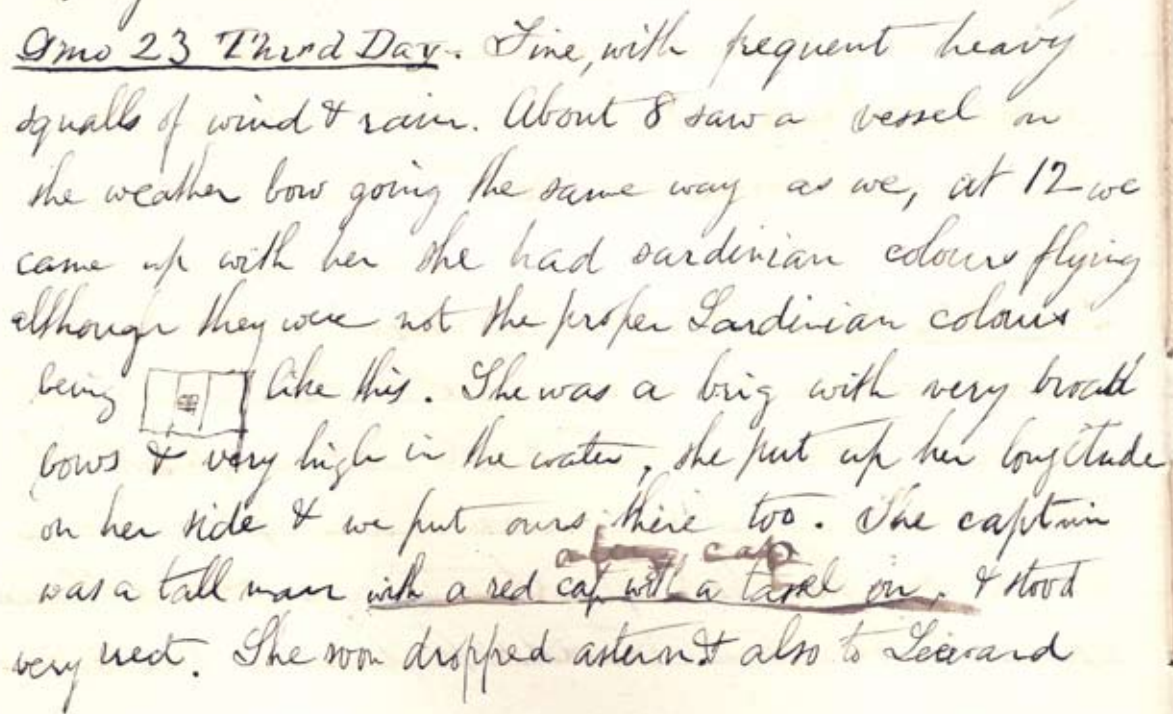 9mo 23 Third Day. Fine, with frequent heavy
squalls of wind & rain. About 8 saw a vessel on
the weather bow going the same way as we, at 12 we
came up with her she had sardinian colours flying
although they were not the proper Sardinian colours
being like this. She was a brig with very broad
bows & very high in the water, she put up her longitude
on her side & we put ours there too. The captain
a fancy cap
was a tall man with a red cap with a tassel on, & stood
very erect. She soon dropped astern & also to Leeward